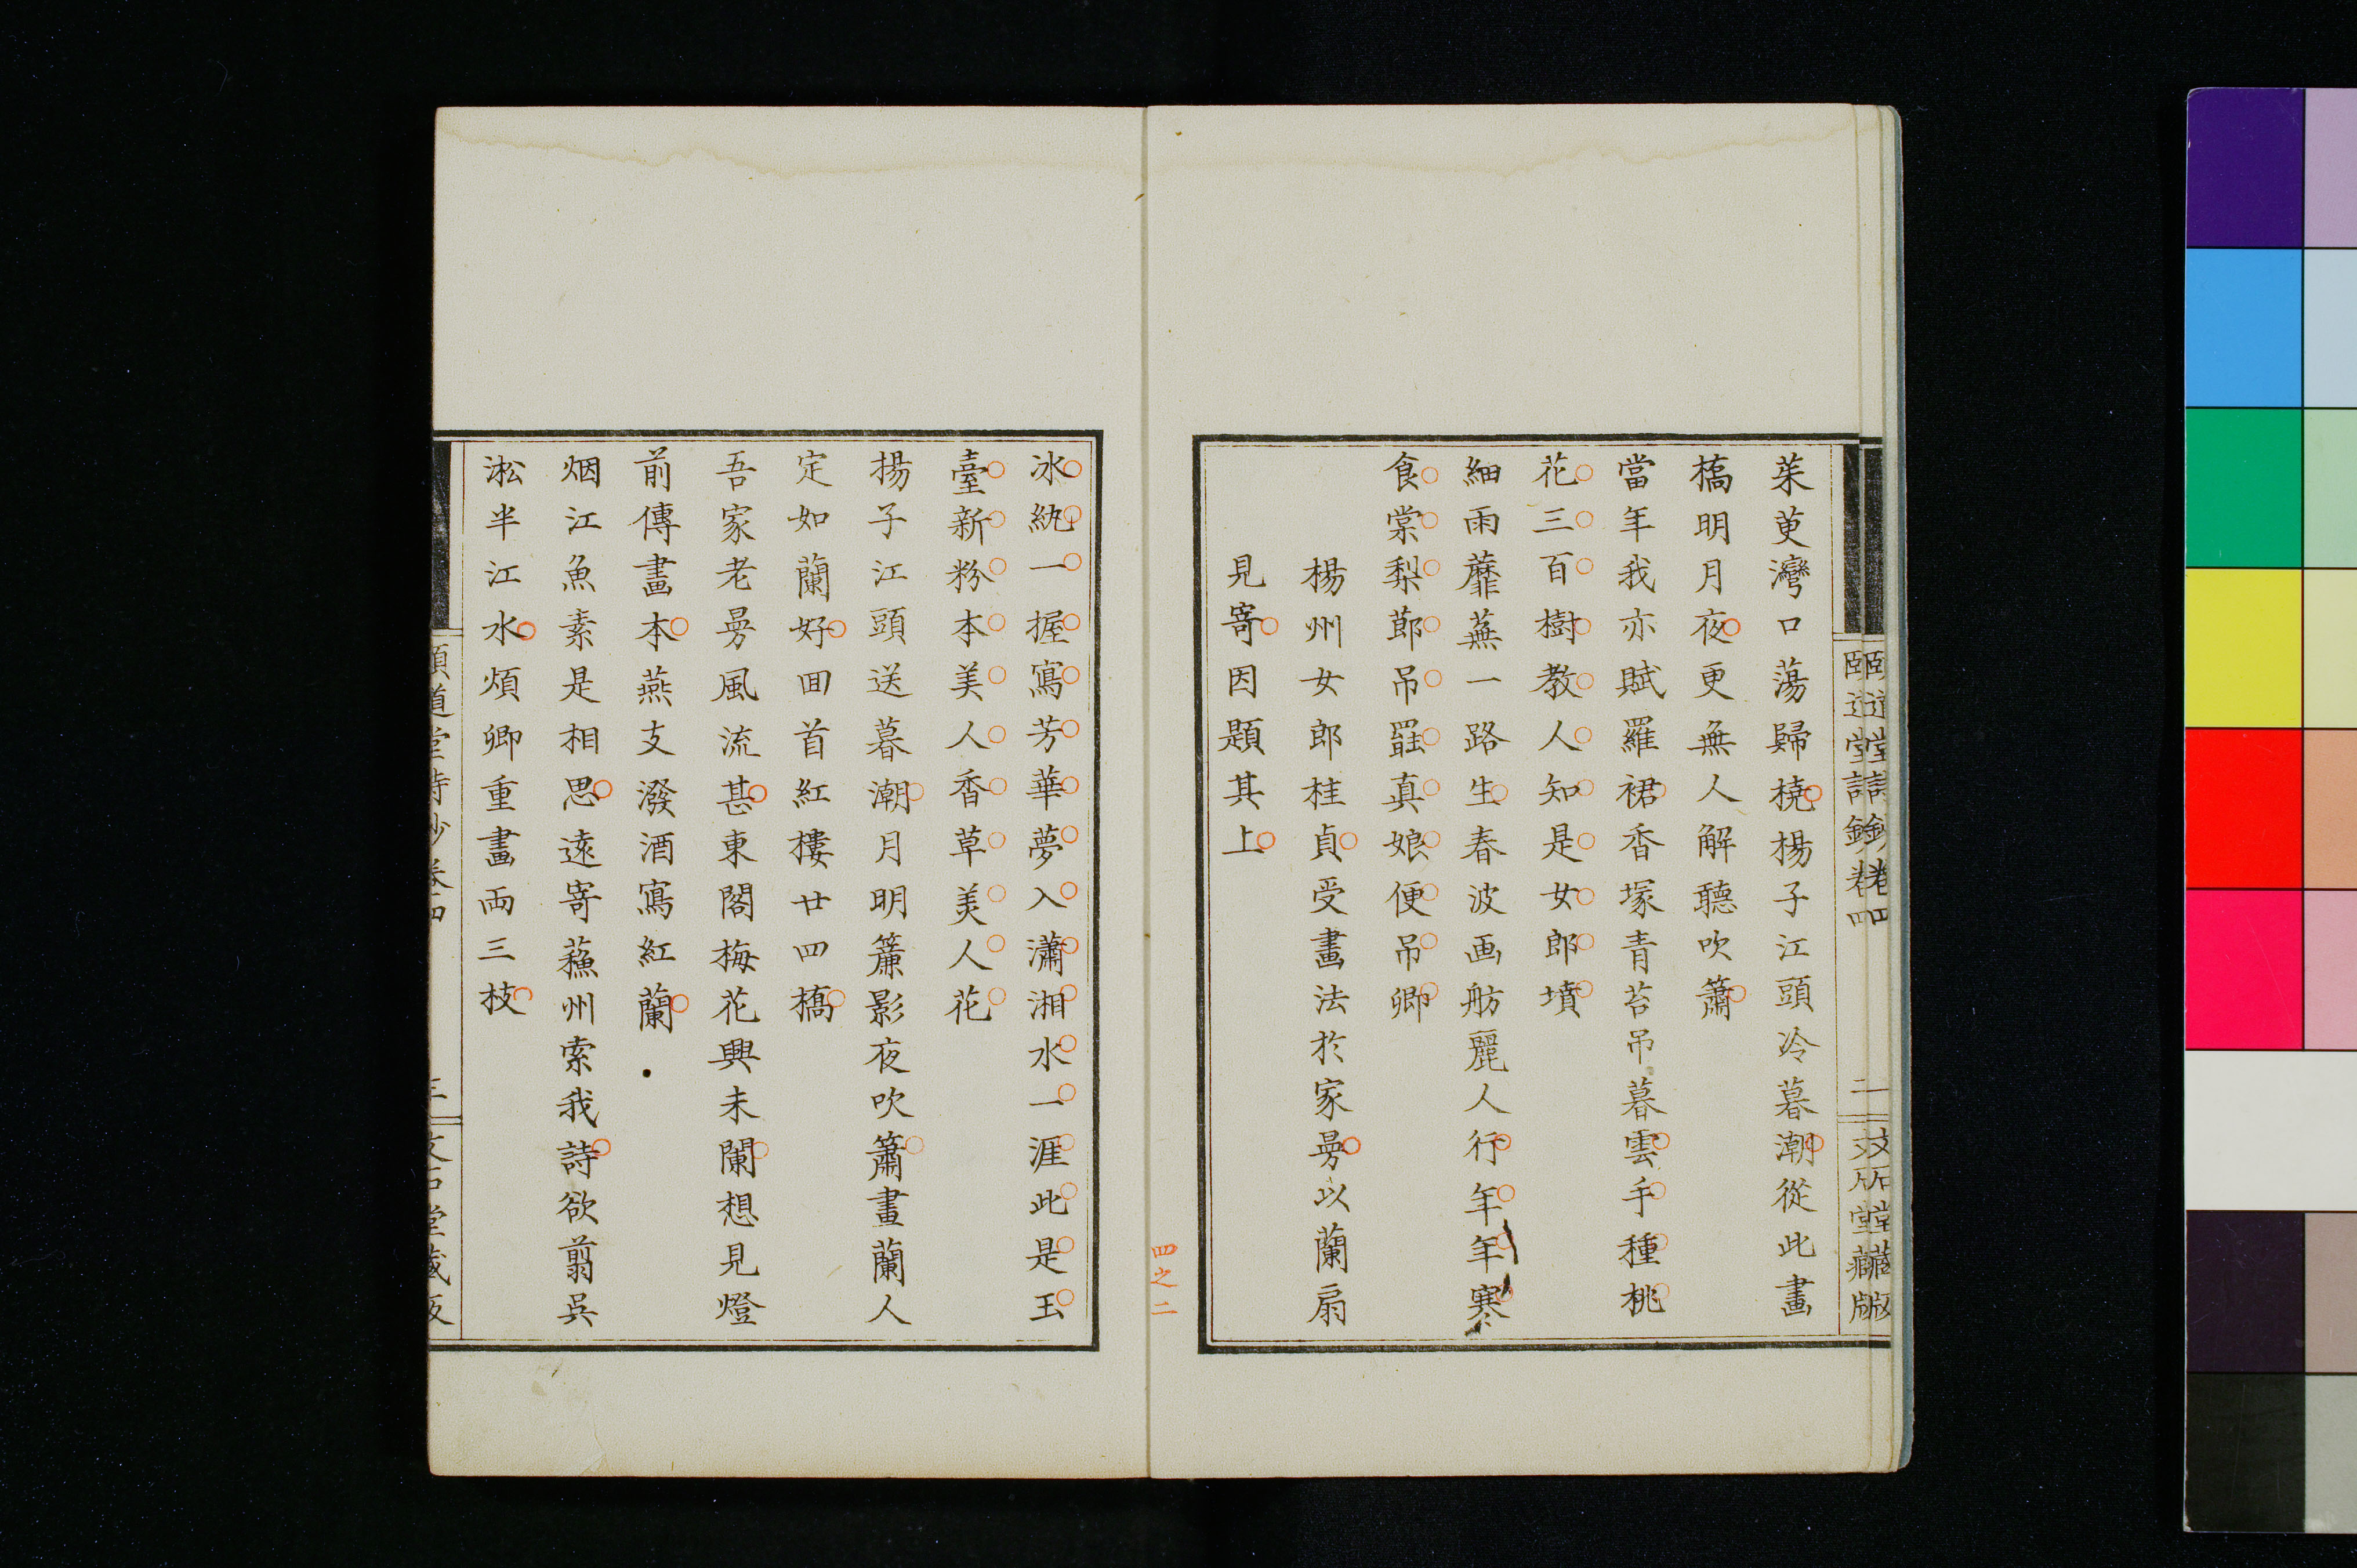 頤道堂詩鈔卷四 二 文石堂藏版
茱萸灣口蕩歸橈楊子江頭冷暮潮從此畫
橋明月夜更無人解聽吹簫
當年我亦賦羅裙香塚青苔吊暮雲手種桃
花三百樹教人知是女郎墳
細雨蘼蕪一路生春波画舫麗人行年年寒
食棠梨節吊罷真娘便吊卿
楊州女郎桂貞受畫法於家曼以蘭扇
見寄因題其上
四之二
冰紈一握寫芳華夢入瀟湘水一涯此是玉
臺新粉本美人香草美人花
揚子江頭送暮潮月明簾影夜吹簫畫蘭人
定如蘭好回首紅樓廿四橋
吾家老曼風流甚東閣梅花興未闌想見燈
前傳畫本燕支潑酒寫紅蘭
烟江魚素是相思遠寄蘓州索我詩欲翦吳
淞半江水煩卿重畫両三枝
頤道堂詩鈔卷四 三 文石堂藏版